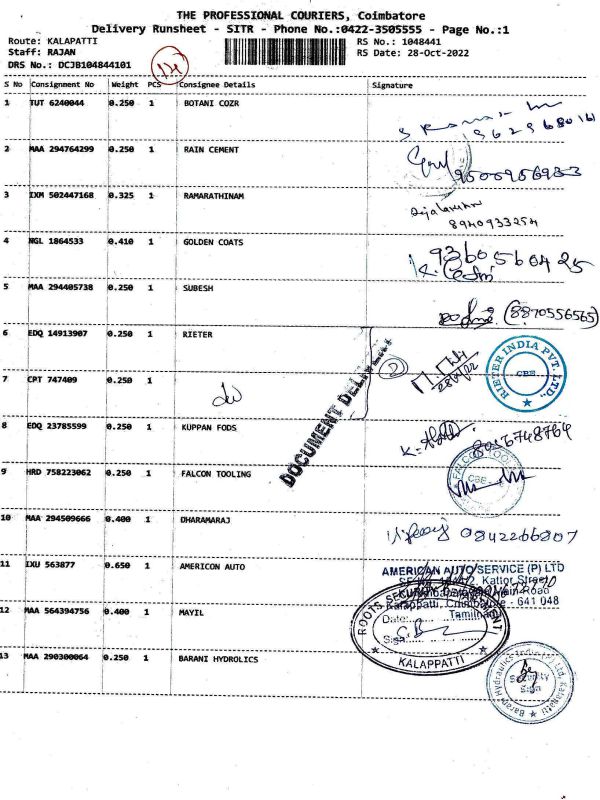 THE PROFESSIONAL COURIERS, Coimbatore
Delivery Runsheet - SITR - Phone No.:0422-3505555 - Page No.:1
Route: KALAPATTI
RS No.: 1048441
Staff: RAJAN
RS Date: 28-Oct-2022
DRS No.: DCJB104844101
S No Consignment No Weight PCS Consignee Details Signature
1 TUT 6240044 0.250 1 BOTANI COZR
2 MAA 294764299 0.250 1 RAIN CEMENT
9500956933
3 IXM 502447168 0.325 1 RAMARATHINAM
8940933254
4 NGL 1864533 0.410 1 GOLDEN COATS
9360560425
5 MAA 294405738 0.250 1 SUBESH
(8870556565)
6 EDQ 14913907 0.250 1 RIETER
DOCUMENT DELIVERY
2
28/10/22
RIETER INDIA PVT. LTD.,
CBE
7 CPT 747409 0.250 1
8 EDQ 23785599 0.250 1 KUPPAN FODS
8056748764
9 HRD 758223062 0.250 1 FALCON TOOLING
FALCON TOOL
CBE
10 MAA 294509666 0.400 1 DHARAMARAJ
11 IXU 563877 0.650 1 AMERICON AUTO
AMERICAN AUTO SERVICE (P) LTD
Kalapatti, Coimbatore - 641 048
Tamilnadu
12 MAA 564394756 0.400 1 MAYIL
ROOTS SECURITY DEPARTMENT
Date:
Sign:
KALAPPATTI
13 MAA 290300064 0.250 1 BARANI HYDROLICS
Barani Hydraulics India (P) Ltd, Kalapatti
Security
Sign